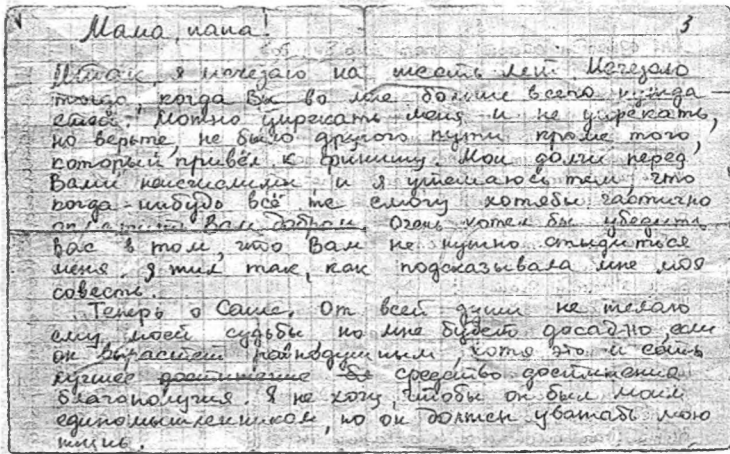 Мама, папа! 3
Итак я исчезаю на шесть лет. Исчезаю
тогда, когда Вы во мне больше всего нужда
етесь. Можно упрекать меня и не упрекать,
но верьте, не было другого пути кроме того,
который привёл к финишу. Мои долги перед
Вами неисчислимы, и я утешаюсь тем, что
когда-нибудь всё же смогу хотябы частично
оплатить Вам добром. Очень хотел бы убедить
Вас в том, что Вам не нужно стыдиться
меня. Я жил так, как подсказывала мне моя
совесть.
Теперь о Саше. От всей души не желаю
ему моей судьбы но мне будет досадно, если
он вырастет равнодушным, хотя это и есть
лучшее достижение средство достижения
благополучия. Я не хочу, чтобы он был моим
единомышленником, но он должен уважать мою
жизнь.